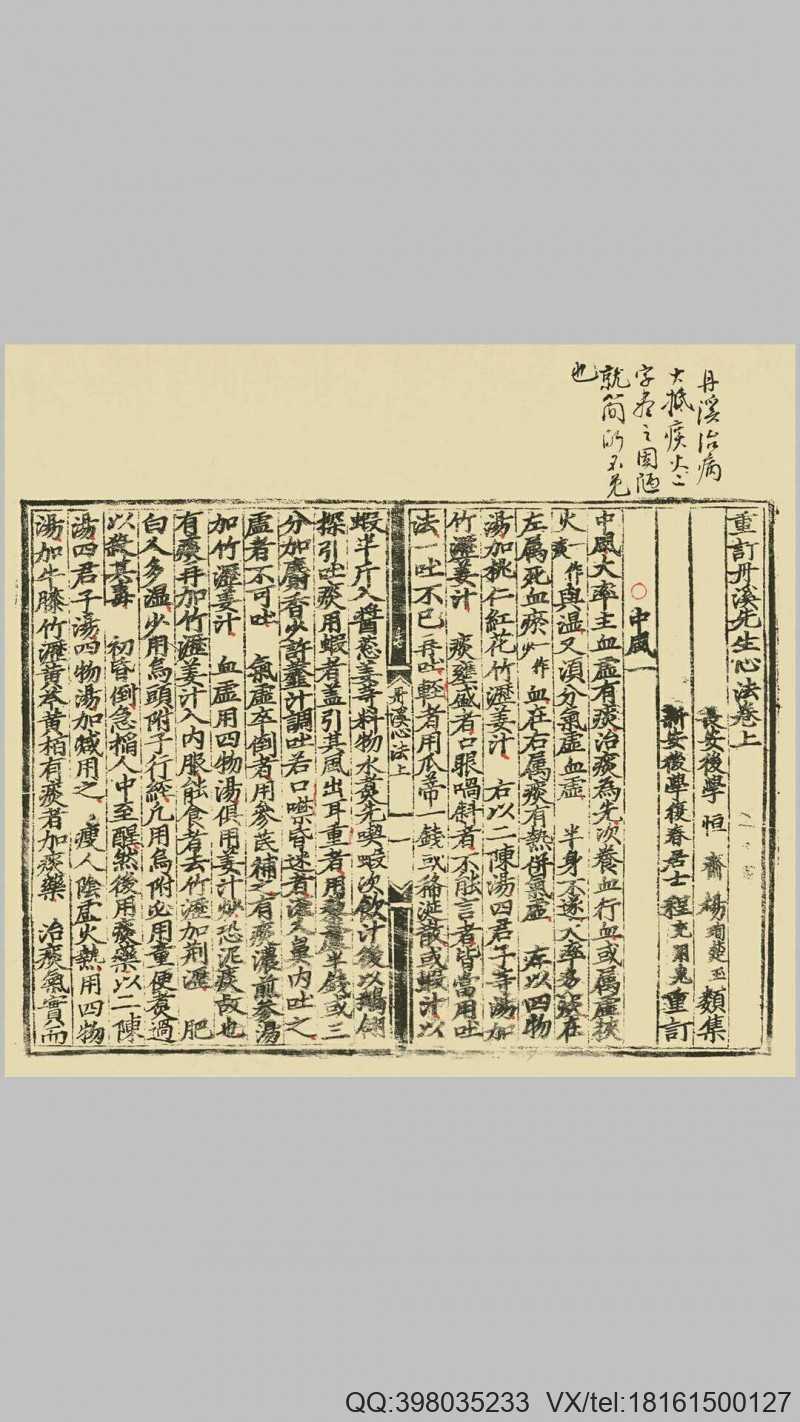 丹溪治病
大抵痰火二
字盡之固陋
就簡所不免
也
重訂丹溪先生心法卷上
長安後學恒齋楊珣楚玉類集
新安後學復春居士程充用光重訂
○中風一
中風大率主血虛有痰治痰為先次養血行血或屬虛挾
火一作痰與温又須分氣虛血虛 半身不遂大率多痰在
左屬死血瘀一作少血在右屬痰有熱併氣虛 左以四物
湯加桃仁紅花竹瀝姜汁 右以二陳湯四君子等湯加
竹瀝姜汁 痰壅盛者口眼喎斜者不能言者皆當用吐
法一吐不已再吐輕者用瓜蒂一錢或稀涎散或蝦汁以
丹溪心法上
一
蝦半斤入醬葱姜等料物水煮先喫蝦次飲汁後以鵝翎
探引吐痰用蝦者蓋引其風出耳重者用藜蘆半錢或三
分加麝香少許虀汁調吐若口噤昏迷者灌入鼻內吐之
虛者不可吐 氣虛卒倒者用參芪補之有痰濃煎參湯
加竹瀝姜汁 血虛用四物湯俱用姜汁炒恐泥痰故也
有痰再加竹瀝姜汁入內服能食者去竹瀝加荆瀝 肥
白人多濕少用烏頭附子行經凡用烏附必用童便煮過
以殺其毒 初昏倒急搯人中至醒然後用痰藥以二陳
湯四君子湯四物湯加減用之 瘦人陰虛火熱用四物
湯加牛膝竹瀝黄芩黄栢有痰者加痰藥 治痰氣實而
QQ:398035233 VX/tel:18161500127